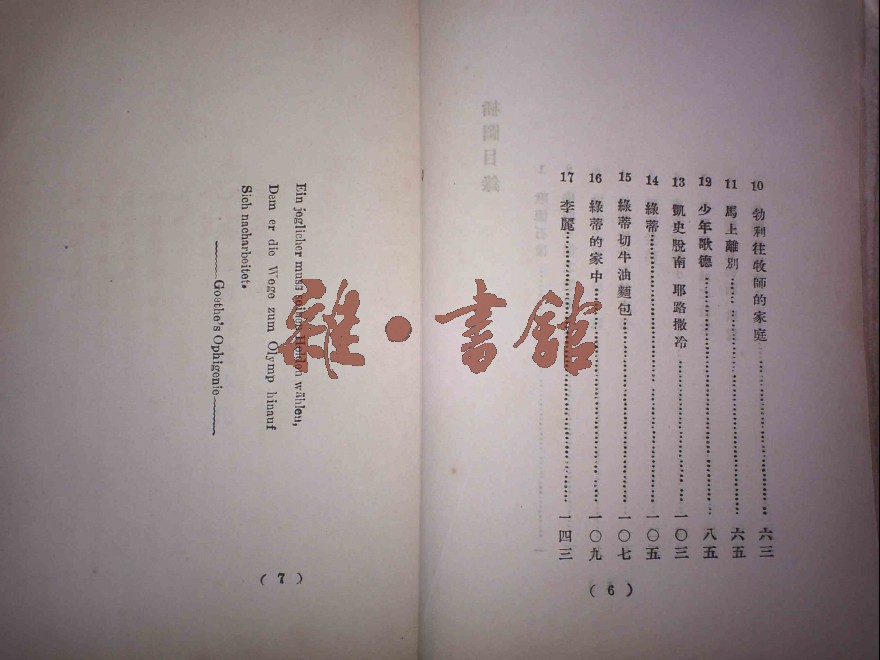 10 勃利往牧師的家庭……六三
11 馬上離別……六五
12 少年歌德……八五
13 凱史脫南 耶路撒冷……一〇三
14 綠蒂……一〇五
15 綠蒂切牛油麵包……一〇七
16 綠蒂的家中……一〇九
17 李麗……一四三
( 6 )
Ein jeglicher muss seinen Helden wählen,
Dem er die Wege zum Olymp hinauf
Sich nacharbeitet.
——Goethe's Ophigenie——
( 7 )
雜•書館